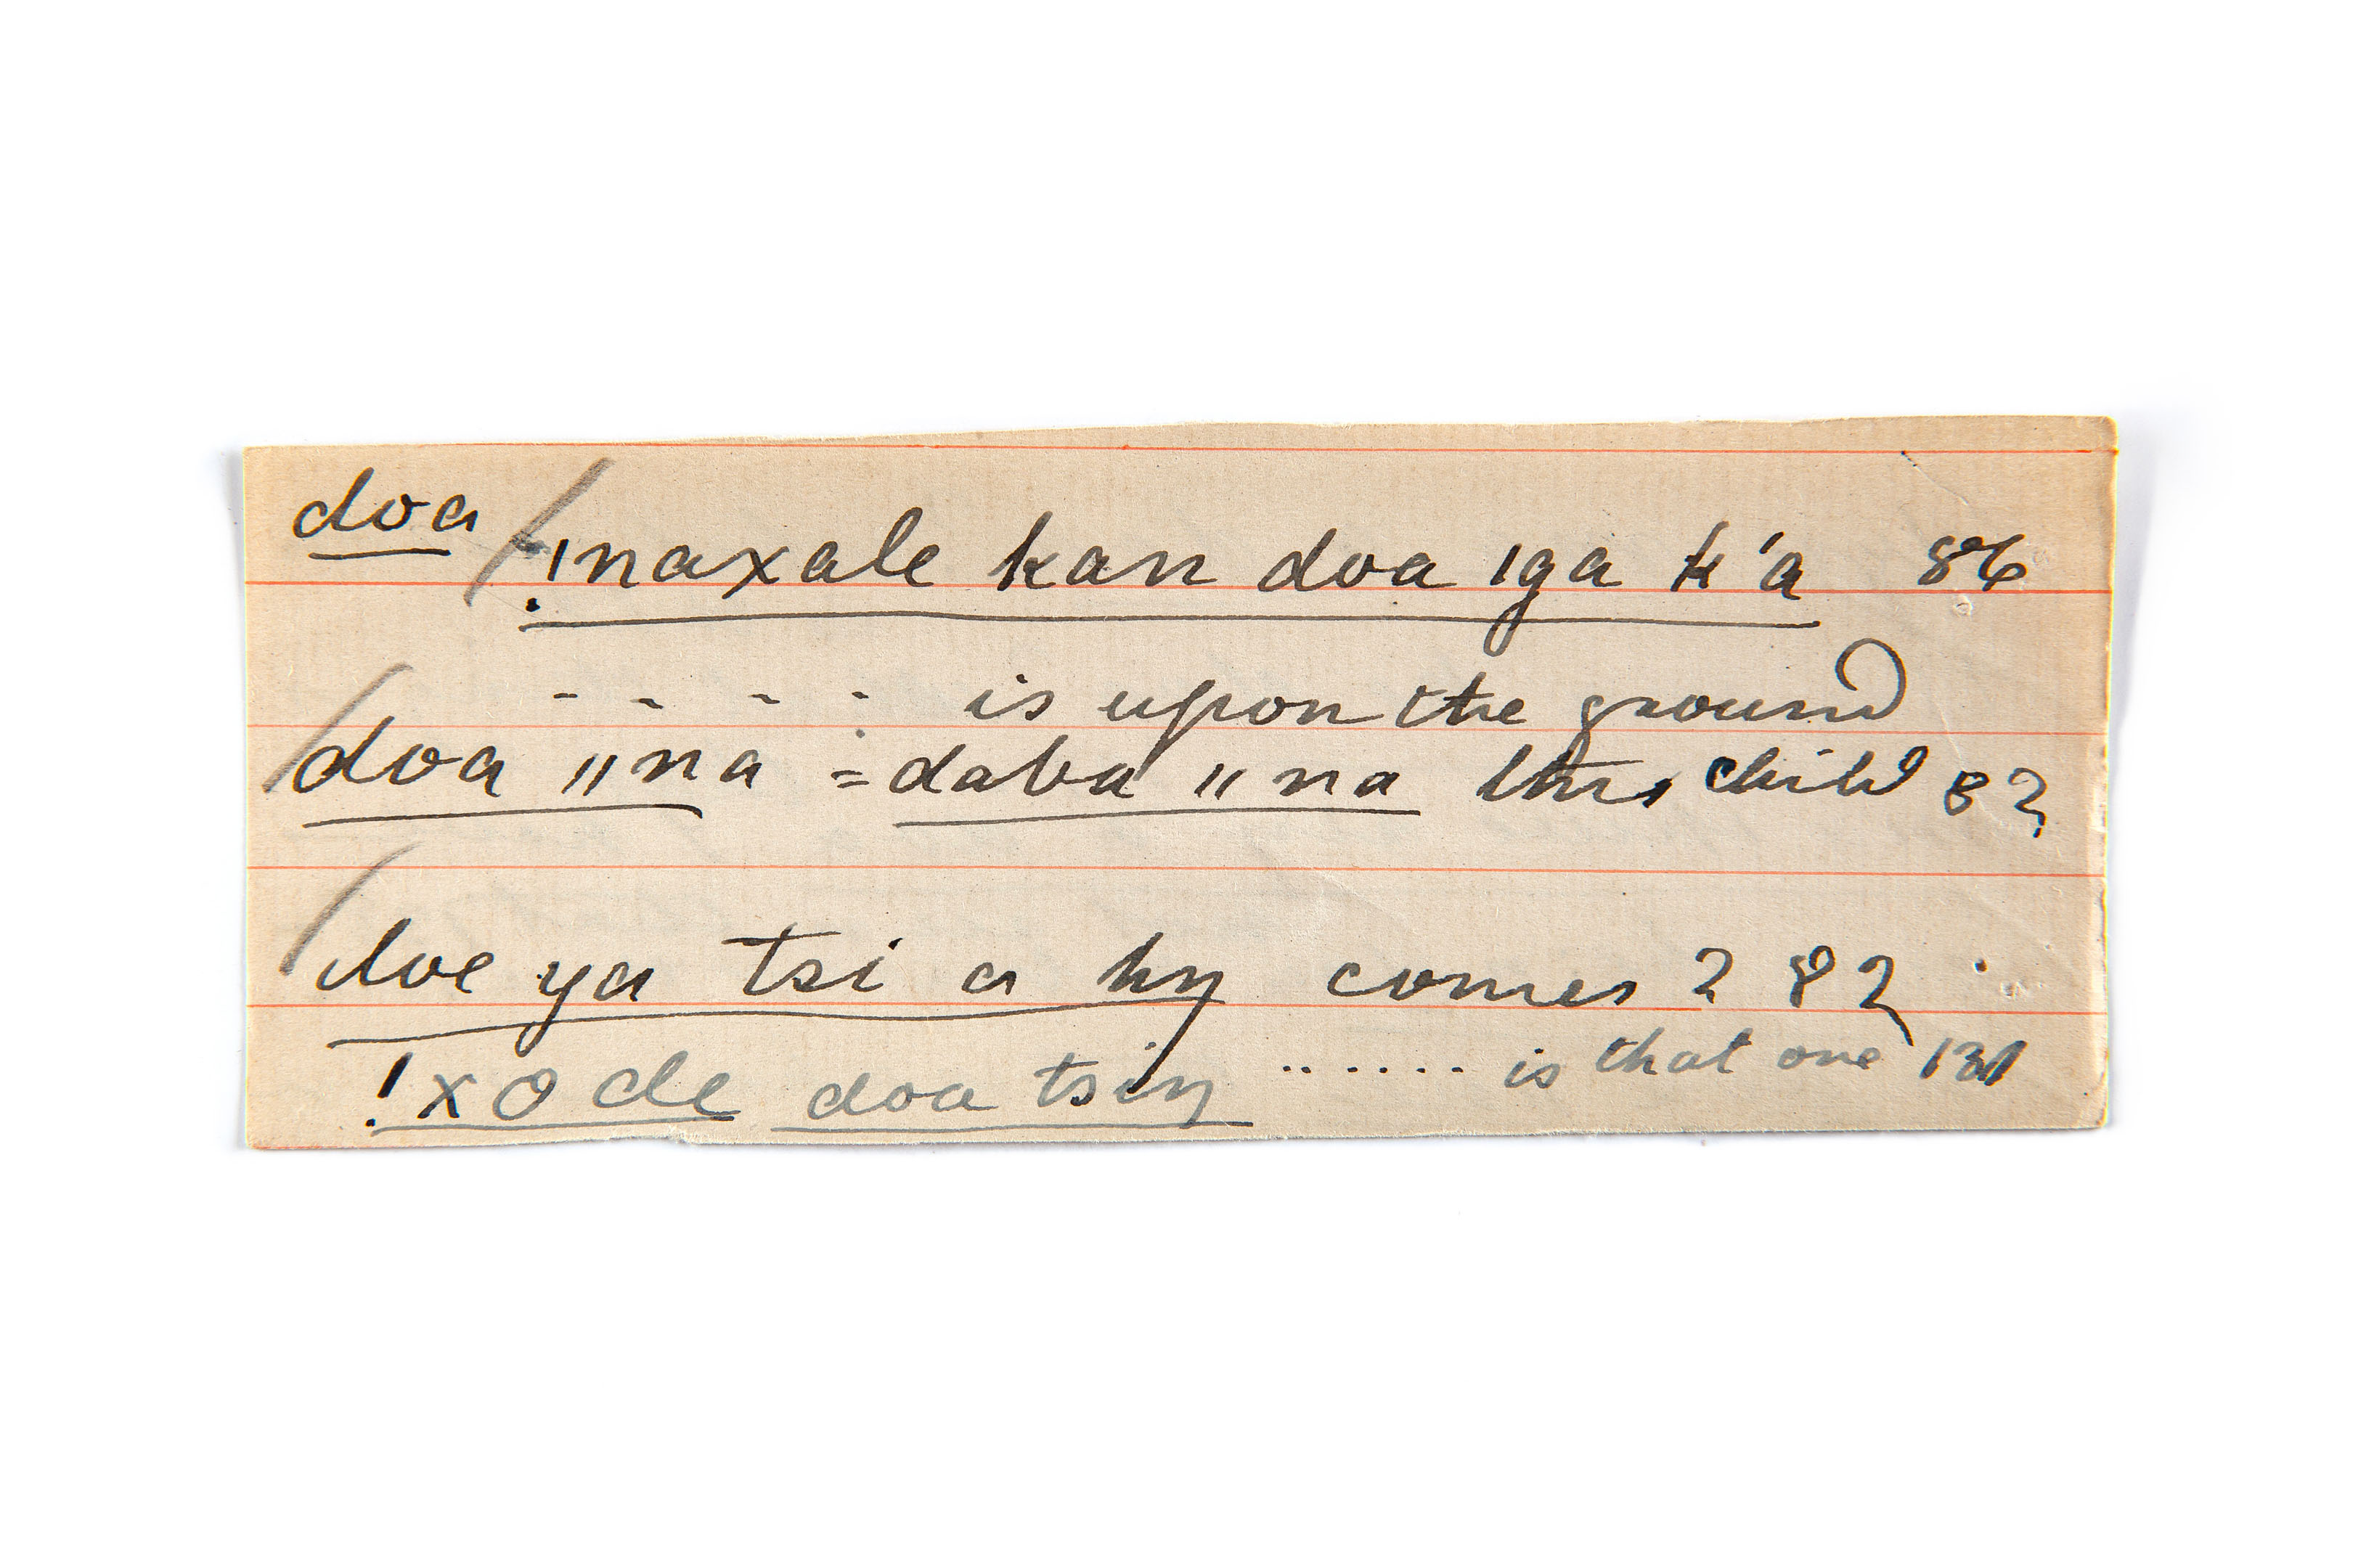 doa
!naxale kan doa |ga k'a 86
- - - - is upon the ground
doa ||na = daba ||na this child 82
doe ya tsi a hŋ comes ? 82
!xo de doa tsiŋ ...... is that one 131